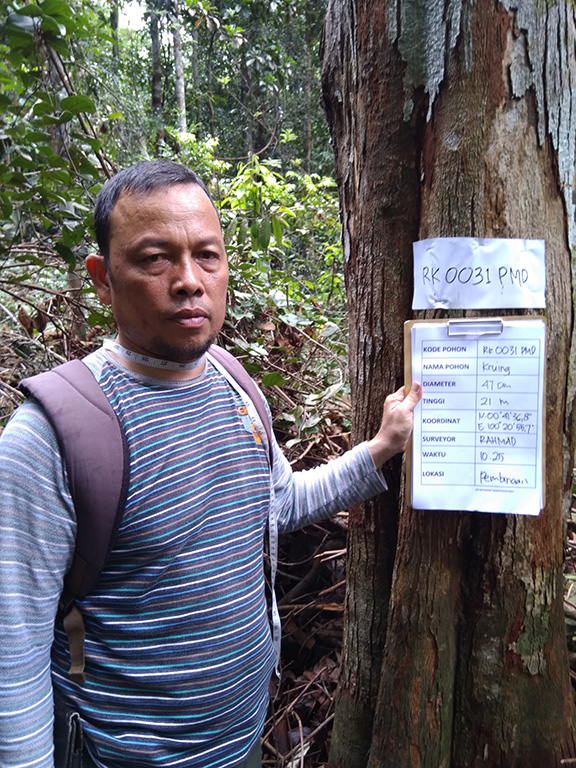 RK 0031 PMD
KODE POHON RK 0031 PMD
NAMA POHON Kruing
DIAMETER 47 cm
TINGGI 21 m
KOORDINAT N 00°41'36,8"
E 100°20'
SURVEYOR RAHMAD
WAKTU 10.25
LOKASI